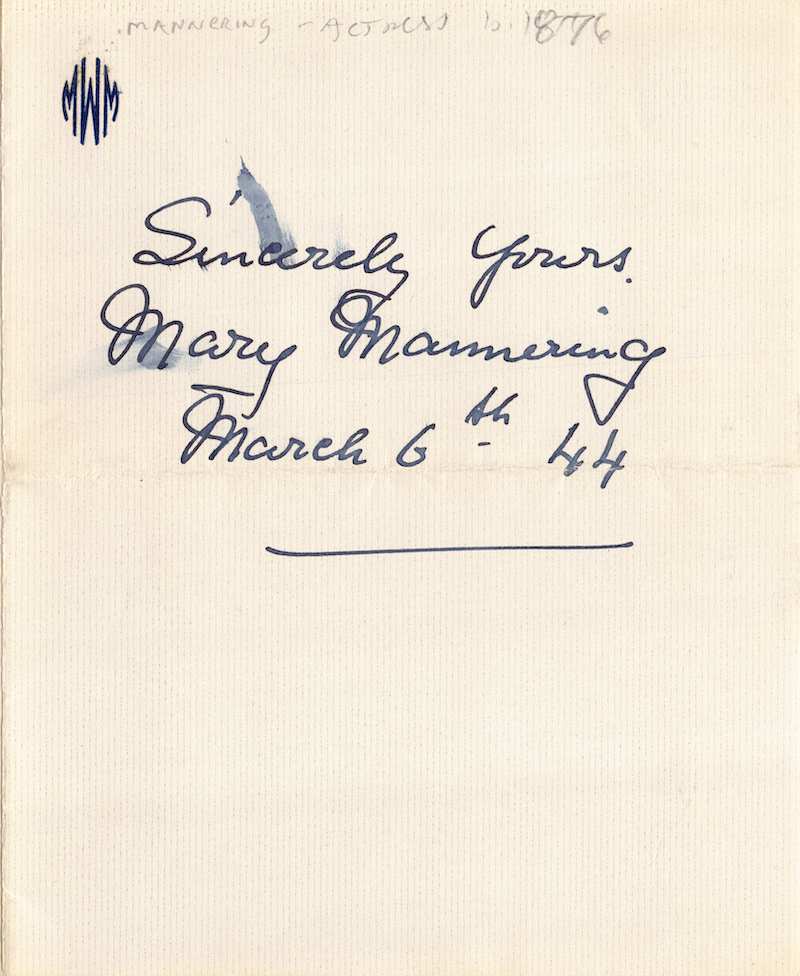 MANNERING - ACTRESS b. 1876
MWM
Sincerely Yours.
Mary Mannering
March 6th 44